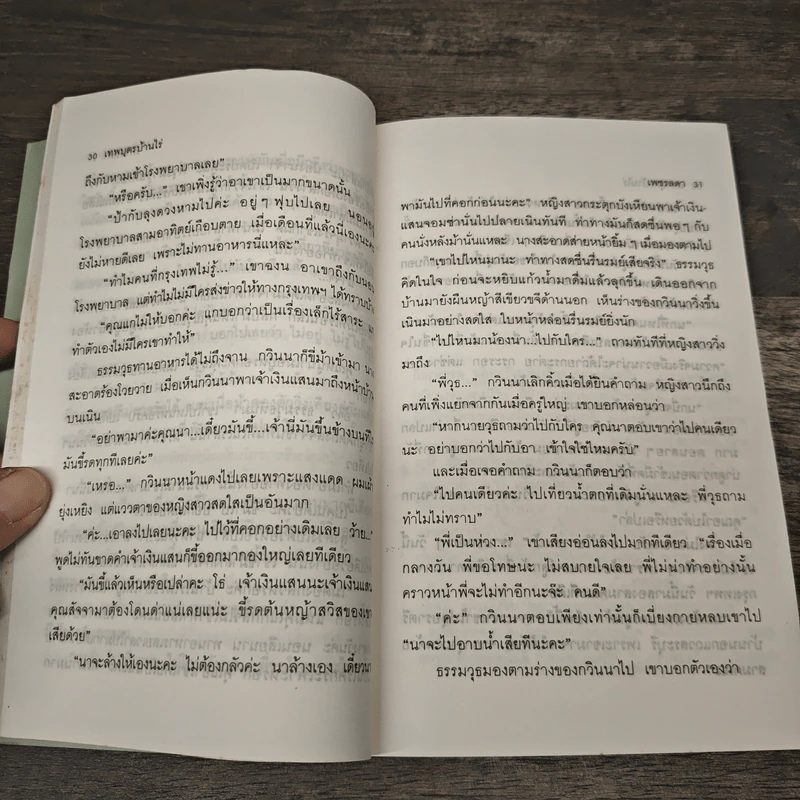 30 เทพบุตรบ้านไร่
ถึงกับหามเข้าโรงพยาบาลเลย”
“หรือครับ...” เขาเพิ่งรู้ว่าอาเขาเป็นมากขนาดนั้น
“ป้ากับลุงดวงหามไปค่ะ อยู่ๆ ฟุบไปเลย นอน
โรงพยาบาลสามอาทิตย์เกือบตาย เมื่อเดือนที่แล้วนี่เองนะคะ
ยังไม่หายดีเลย เพราะไม่ทานอาหารนี่แหละ”
“ทำไมคนที่กรุงเทพไม่รู้...” เขาฉงน อาเขาถึงกับนอน
โรงพยาบาล แต่ทำไมไม่มีใครส่งข่าวให้ทางกรุงเทพฯ ได้ทราบบ้าง
“คุณแกไม่ให้บอกค่ะ แกบอกว่าเป็นเรื่องเล็กไร้สาระ
ทำตัวเองไม่มีใครเขาทำให้”
ธรรมวุธทานอาหารได้ไม่ถึงจาน กวินนาก็ขี่ม้าเข้ามา
สะอาดร้องโวยวาย เมื่อเห็นกวินนาพาเจ้าเงินแสนมาถึงหน้าบ้าน
บนเนิน
“อย่าพามาค่ะคุณนา...เดี๋ยวมันขี้...เจ้านี่มันขึ้นข้างบนที
มันขี้รดทุกทีเลยค่ะ”
“เหรอ...” กวินนาหน้าแดงไปเลยเพราะแสงแดด ผมเผ้า
ยุ่งเหยิง แต่แววตาของหญิงสาวสดใสเป็นอันมาก
“ค่ะ...เอาลงไปเลยนะคะ ไปไว้ที่คอกอย่างเดิมเลย ว้าย...”
พูดไม่ทันขาดคำเจ้าเงินแสนก็ขี้ออกมากองใหญ่เลยทีเดียว
“มันขี้แล้วเห็นหรือเปล่าคะ โธ่ เจ้าเงินแสนนะเจ้าเงินแสน
คุณสัจจามาต้องโดนด่าแน่เลยแน่ะ ขี้รดต้นหญ้าสวิสของเขา
เสียด้วย”
“นาจะล้างให้เองนะคะ ไม่ต้องกลัวค่ะ นาล้างเอง เดี๋ยวนา
เพชรลดา 31
พามันไปที่คอกก่อนนะคะ” หญิงสาวกระตุกบังเหียนพาเจ้าเงิน-
แสนจอมซ่านั่นไปปลายเนินทันที ท่าทางมันก็สดชื่นพอๆ กับ
คนนั่งหลังม้านั่นแหละ นางสะอาดส่ายหน้ายิ้มๆ เมื่อมองตามไป
“เขาไปไหนมาน่ะ ท่าทางสดชื่นรื่นรมย์เสียจริง” ธรรมวุธ
คิดในใจ ก่อนจะหยิบแก้วน้ำมาดื่มแล้วลุกขึ้น เดินออกจาก
บ้านมายังผืนหญ้าสีเขียวขจีด้านนอก เห็นร่างของกวินนาวิ่งขึ้น
เนินมาอย่างสดใส ใบหน้าหล่อนรื่นรมย์ยิ่งนัก
“ไปไหนมาน้องน่า...ไปกับใคร...” ถามทันทีที่หญิงสาววิ่ง
มาถึง
“พี่วุธ...” กวินนาเลิกคิ้วเมื่อได้ยินคำถาม หญิงสาวนึกถึง
คนที่เพิ่งแยกจากกันเมื่อครู่ใหญ่ เขาบอกหล่อนว่า
“หากนายวุธถามว่าไปกับใคร คุณนาตอบเขาว่าไปคนเดียว
นะ อย่าบอกว่าไปกับอา เข้าใจใช่ไหมครับ”
และเมื่อเจอคำถาม กวินนาก็ตอบว่า
“ไปคนเดียวค่ะ ไปเที่ยวน้ำตกที่เดิมนั่นแหละ พี่วุธถาม
ทำไมไม่ทราบ”
“พี่เป็นห่วง...” เขาเสียงอ่อนลงไปมากทีเดียว “เรื่องเมื่อ
กลางวัน พี่ขอโทษนะ ไม่สบายใจเลย พี่ไม่น่าทำอย่างนั้น
คราวหน้าพี่จะไม่ทำอีกนะจ๊ะ คนดี”
“ค่ะ” กวินนาตอบเพียงเท่านั้นก็เบี่ยงกายหลบเขาไป
“นาจะไปอาบน้ำเสียทีนะคะ”
ธรรมวุธมองตามร่างของกวินนาไป เขาบอกตัวเองว่า